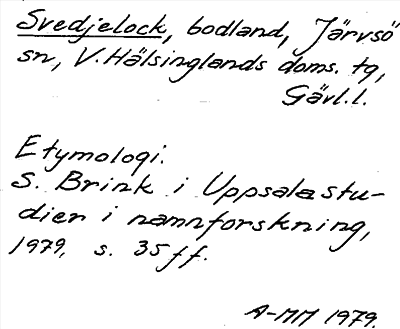 Svedjelock, bodland, Järvsö
sn, V. Hälsinglands doms. tg,
Gävl. l.
Etymologi.
S. Brink i Uppsalastu-
dier i namnforskning,
1979, s. 35 ff.
A-MM 1979.